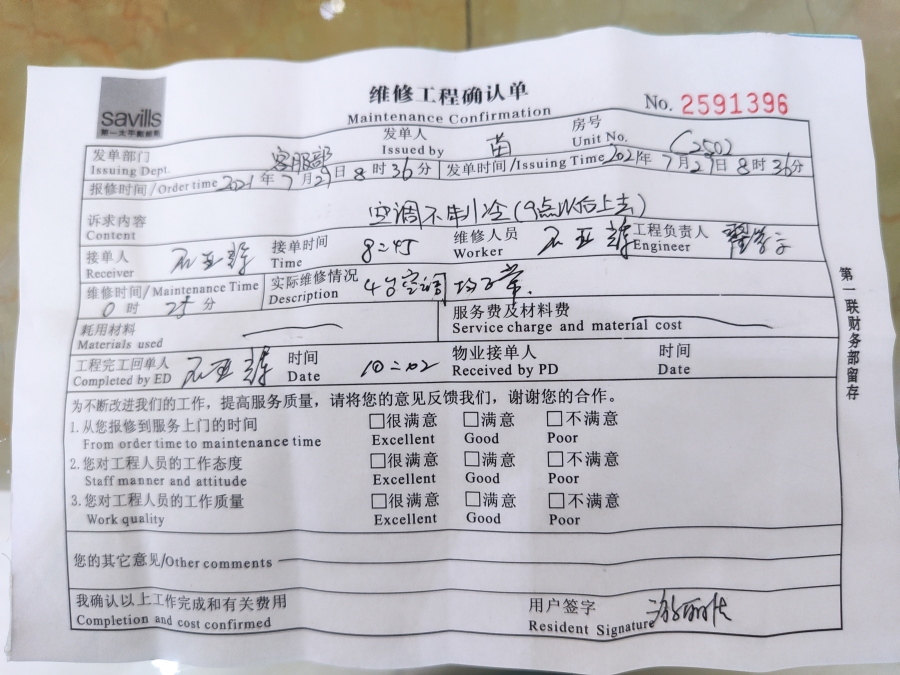 savills
第一太平戴维斯
维修工程确认单
Maintenance Confirmation
No. 2591396
发单部门 客服部 发单人 苗 房号
Issuing Dept. Issued by Unit No. 2502
报修时间/Order time 2021年7月29日8时36分 发单时间/Issuing Time 2021年7月29日8时36分
诉求内容 空调不制冷(9点以后上去)
Content
接单人 石亚 接单时间 8:45 维修人员 石亚 工程负责人
Receiver Time Worker Engineer
维修时间/Maintenance Time 实际维修情况 4台空调均正常.
0时25分 Description
耗用材料 服务费及材料费
Materials used Service charge and material cost
工程完工回单人 石亚 时间 10:02 物业接单人 时间
Completed by ED Date Received by PD Date
为不断改进我们的工作，提高服务质量，请将您的意见反馈我们，谢谢您的合作。
1.从您报修到服务上门的时间 □很满意 □满意 □不满意
From order time to maintenance time Excellent Good Poor
2.您对工程人员的工作态度 □很满意 □满意 □不满意
Staff manner and attitude Excellent Good Poor
3.您对工程人员的工作质量 □很满意 □满意 □不满意
Work quality Excellent Good Poor
您的其它意见/Other comments
我确认以上工作完成和有关费用 用户签字
Completion and cost confirmed Resident Signature
第一联财务部留存